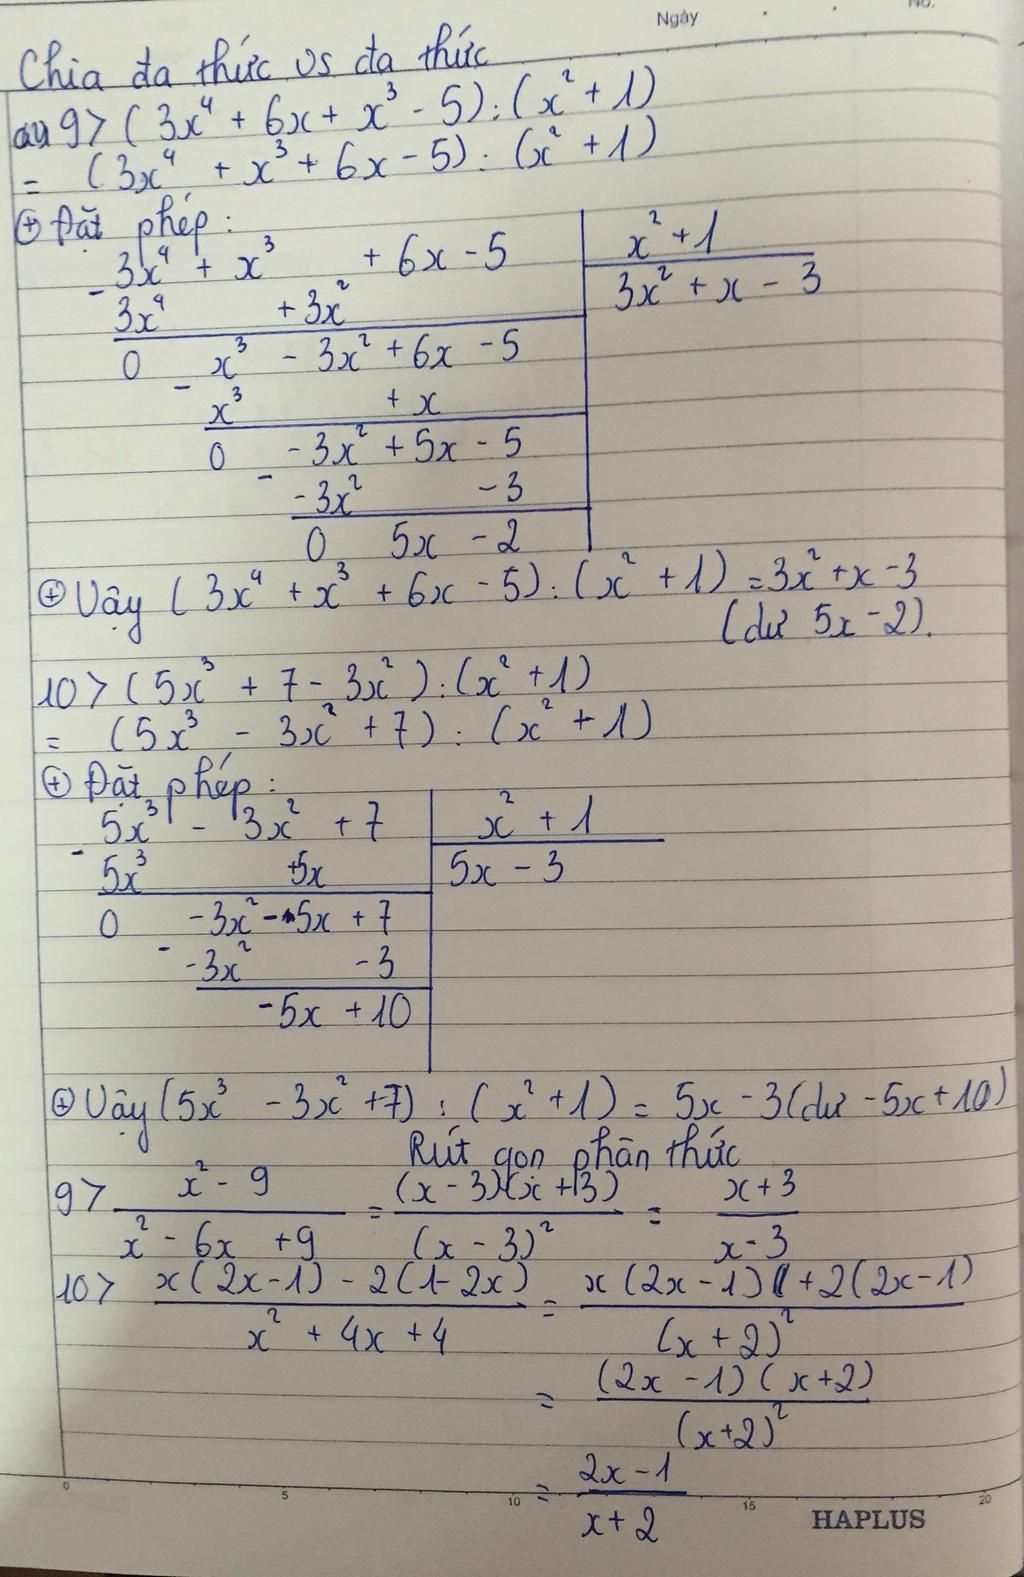 Ngày
No.
Chia đa thức vs đa thức
9> (3x⁴ + 6x + x³ - 5) : (x² + 1)
= (3x⁴ + x³ + 6x - 5) : (x² + 1)
⊕ Đặt phép :
- 3x⁴ + x³ + 6x - 5 | x² + 1
3x⁴ + 3x² | 3x² + x - 3
0 x³ - 3x² + 6x - 5
- x³ + x
0 - 3x² + 5x - 5
- - 3x² - 3
0 5x - 2
⊕ Vậy (3x⁴ + x³ + 6x - 5) : (x² + 1) = 3x² + x - 3
(dư 5x - 2).
10> (5x³ + 7 - 3x²) : (x² + 1)
= (5x³ - 3x² + 7) : (x² + 1)
⊕ Đặt phép :
- 5x³ - 3x² + 7 | x² + 1
5x³ +5x | 5x - 3
0 - 3x² - 5x + 7
- - 3x² - 3
- 5x + 10
⊕ Vậy (5x³ - 3x² + 7) : (x² + 1) = 5x - 3 (dư - 5x + 10)
Rút gọn phân thức
9> (x² - 9)/(x² - 6x + 9) = (x - 3)(x + 3)/(x - 3)² = (x + 3)/(x - 3)
10> (x(2x - 1) - 2(1 - 2x))/(x² + 4x + 4) = (x(2x - 1) + 2(2x - 1))/(x + 2)²
= (2x - 1)(x + 2)/(x + 2)²
= (2x - 1)/(x + 2)
0 5 10 15 20
HAPLUS